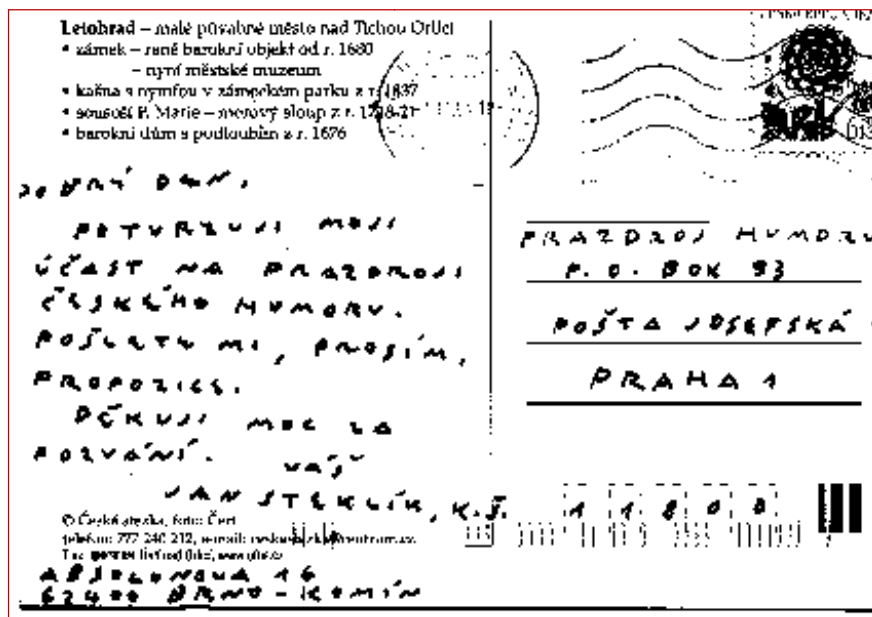 Letohrad – malé půvabné město nad Tichou Orlicí
• zámek – raně barokní objekt od r. 1680
– nyní městské muzeum
• kašna s nymfou v zámeckém parku z r. 1837
• sousoší P. Marie – morový sloup z r.
• barokní dům s podloubím z r. 1676
DOBRÝ DEN,
POTVRZUJI MOJI
ÚČAST NA PRAZDROJI
ČESKÉHO HUMORU.
POŠLETE MI, PROSÍM,
PROPOZICE.
DĚKUJI MOC ZA
POZVÁNÍ.
VÁŠ
JAN STEKLÍK, K.Š.
© Česká stezka, foto: Čert
telefon: 777 240 212, e-mail:
ABSOLONOVA 16
62400 BRNO - KOMÍN
PRAZDROJ HUMORU
P. O. BOX 93
POŠTA JOSEFSKÁ
PRAHA 1
11800